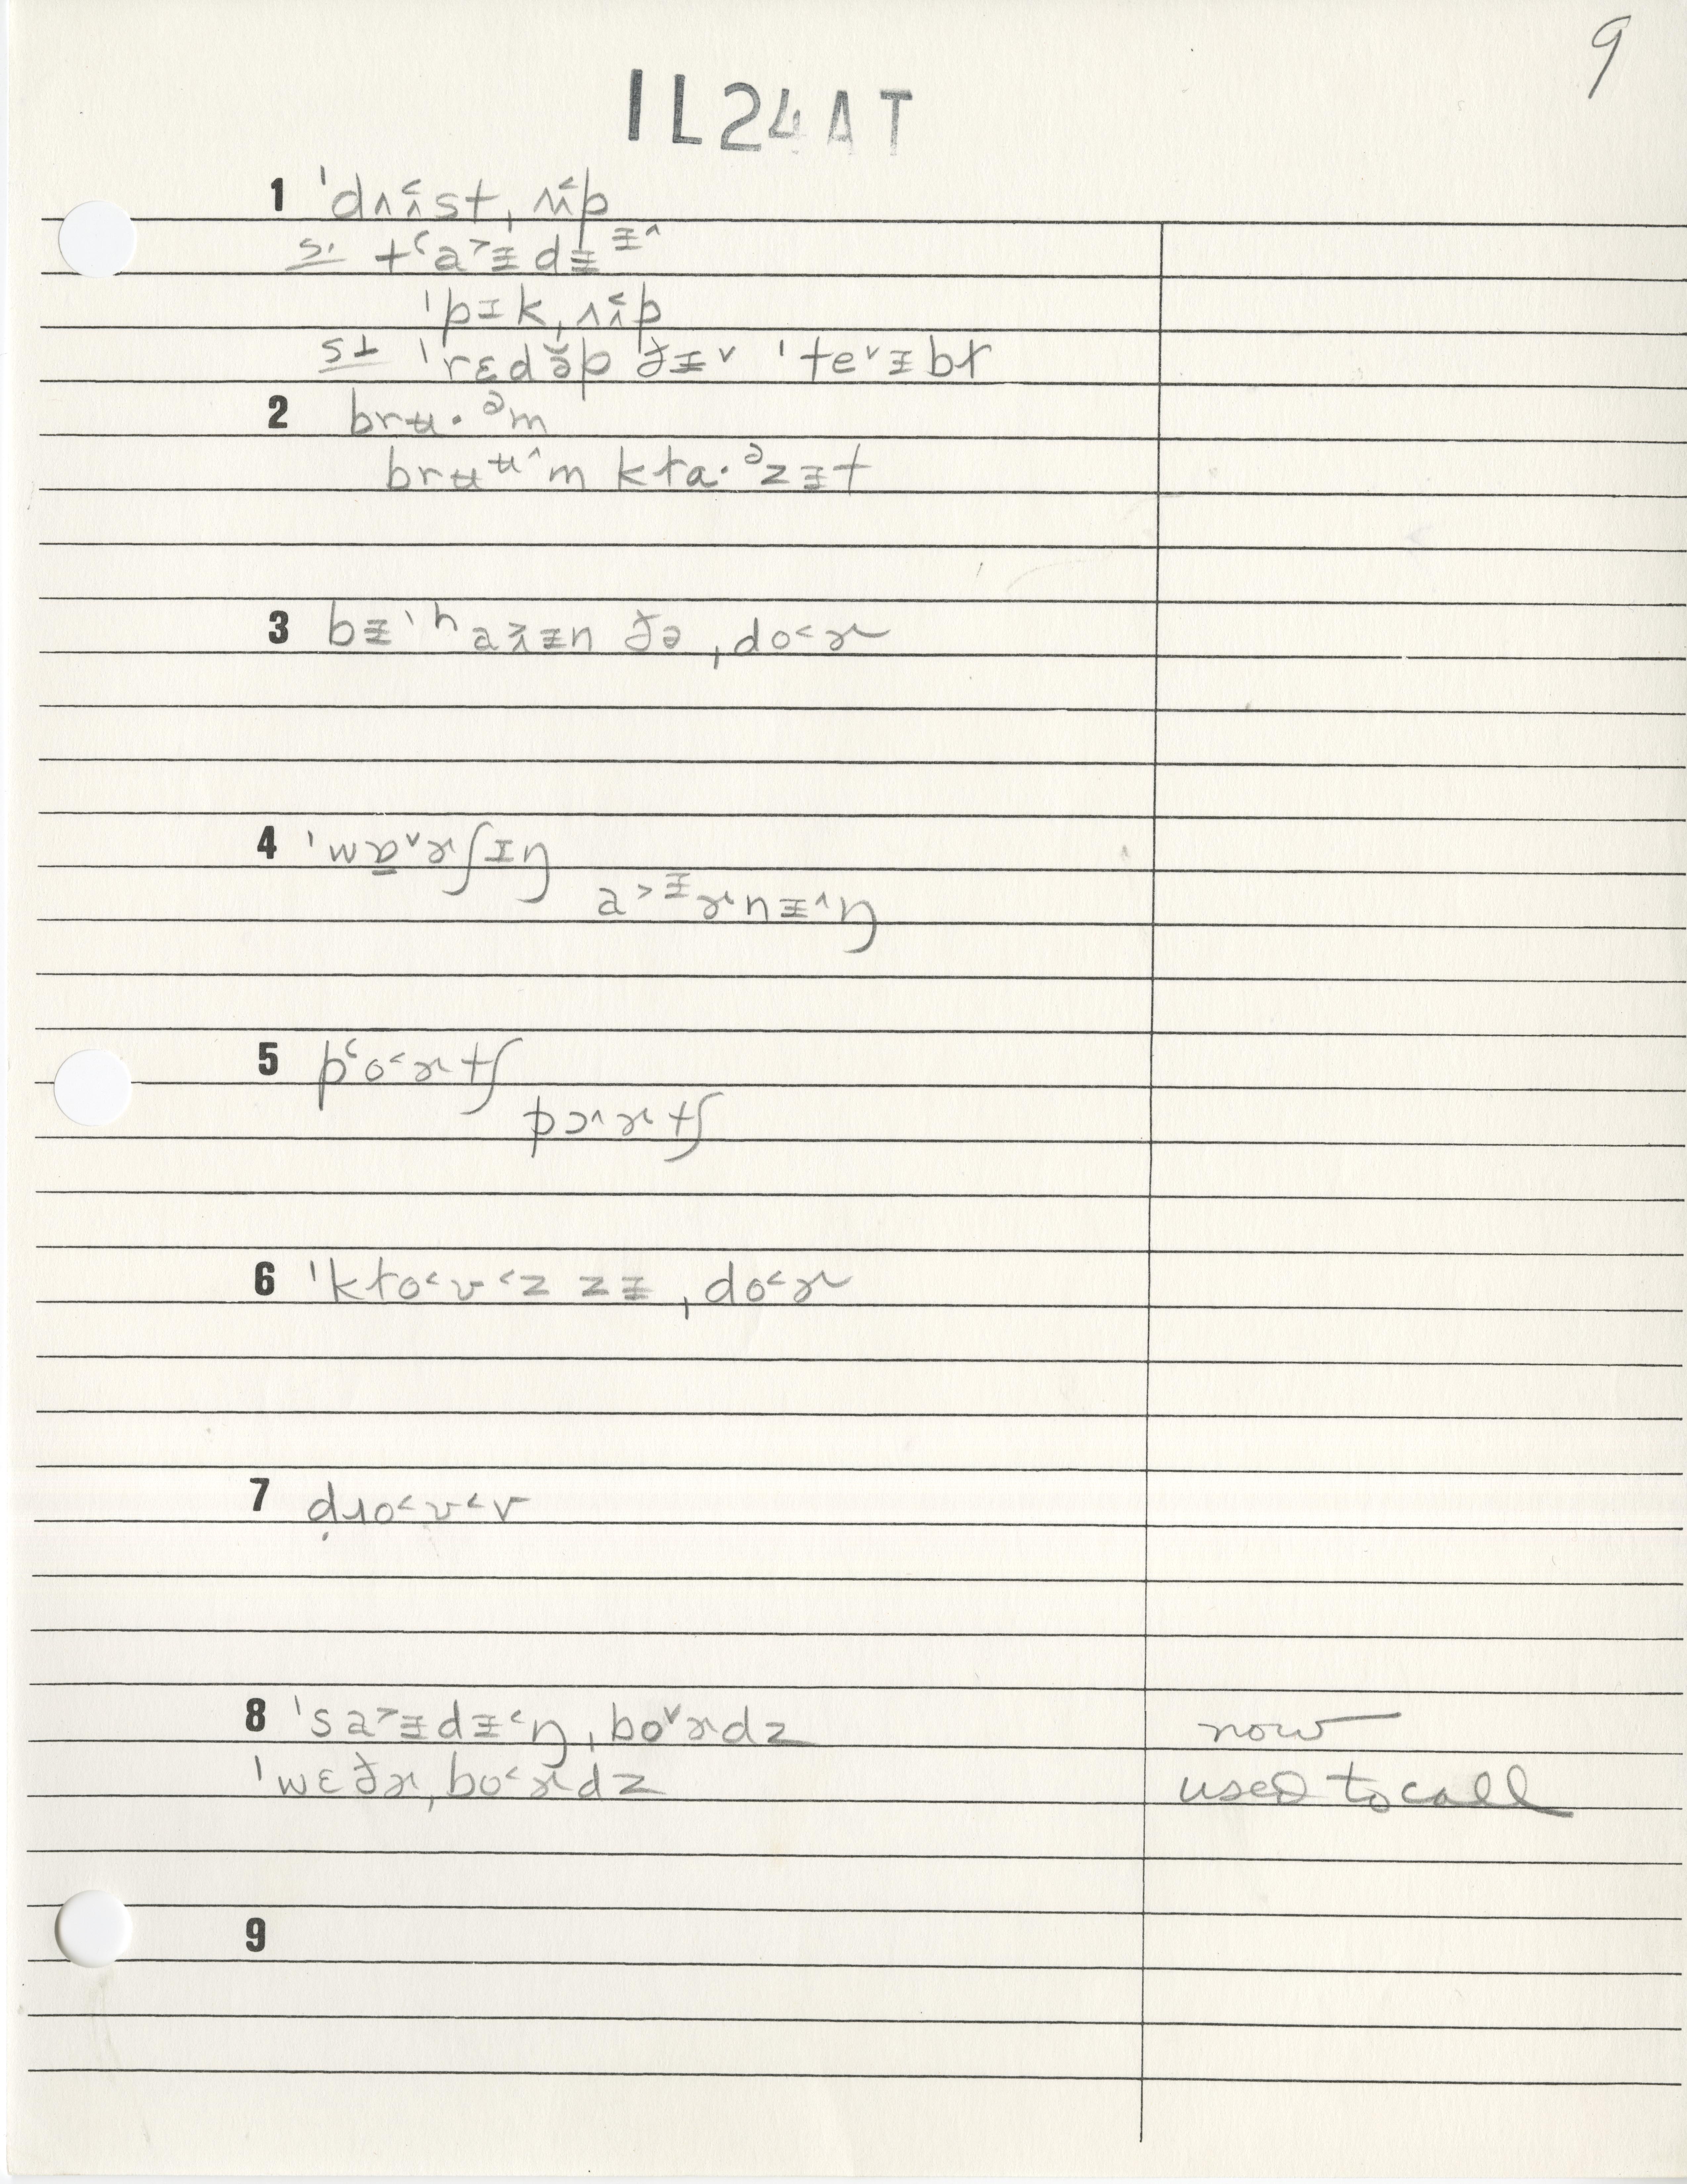 9
IL24AT
1 ˈdʌʌ̯˂st, ʌʌ̯˂p
s. t‘a˃ɪ̵dɪ̵ɪ̵˄
ˈpɪk, ʌʌ̯˂p
s⊥ ˈrɛdə̆p ðɪ̵˅ ˈte˅ɪ̵bɫ
2 brʉ·ᵊm
brʉʉ˄m kɫa·ᵊzɪ̵t
3 bɪ̵ˈhaʌ̯˃ɪ̵n ðə ˌdo˂ɚ
4 ˈwɒ̱˅ɚʃɪŋ
a˃ɪ̵ɚnɪ̵˄ŋ
5 p‘o˂ɚtʃ
pɔ˄ɚtʃ
6 ˈkɫo˂ʊ˂z zɪ̵ ˌdo˂ɚ
7 dɹo˂ʊ˂v
8 ˈsa˃ɪ̵dɪ̵˂ŋ ˌbo˅ɚdz now
ˈwɛðɚ ˌbo˂ɚdz used to call
9